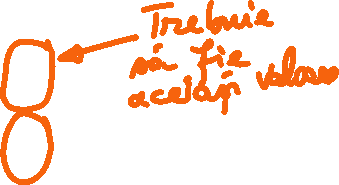 Trebuie
să fie
aceiași valoare